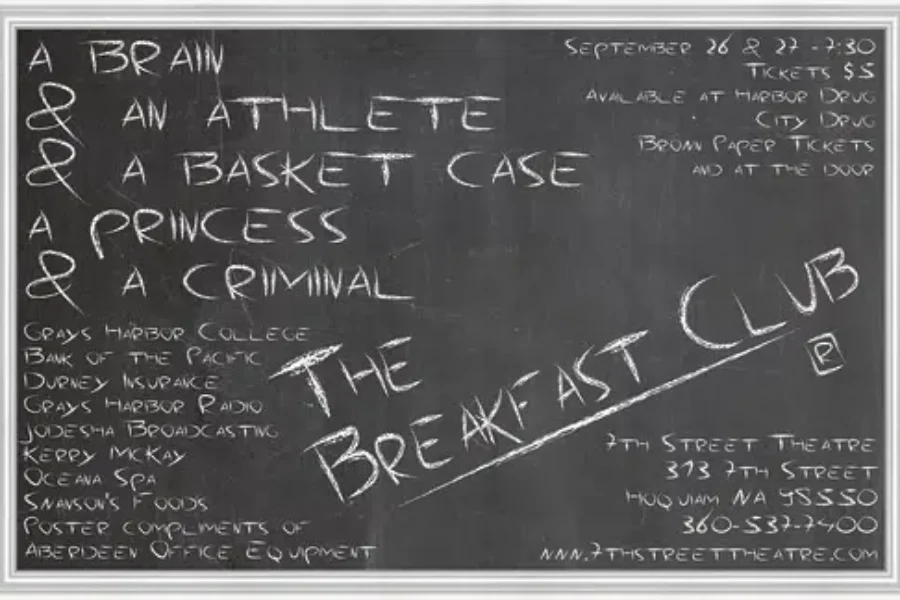 A BRAIN
& AN ATHLETE
& A BASKET CASE
A PRINCESS
& A CRIMINAL
SEPTEMBER 26 & 27 - 7:30
TICKETS $5
AVAILABLE AT HARBOR DRUG
CITY DRUG
BROWN PAPER TICKETS
AND AT THE DOOR
THE
BREAKFAST CLUB
R
GRAYS HARBOR COLLEGE
BANK OF THE PACIFIC
DURNEY INSURANCE
GRAYS HARBOR RADIO
JODESHA BROADCASTING
KERRY MCKAY
OCEANA SPA
SWANSON'S FOODS
POSTER COMPLIMENTS OF
ABERDEEN OFFICE EQUIPMENT
7TH STREET THEATRE
313 7TH STREET
HOQUIAM WA 98550
360-537-7400
WWW.7THSTREETTHEATRE.COM